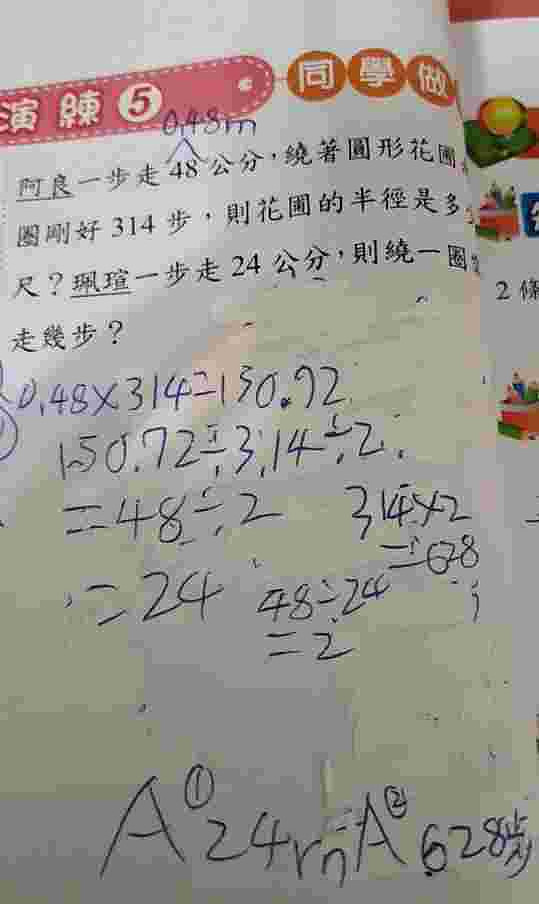 演練5 同學做
0.48m
阿良一步走48公分，繞著圓形花圃
圈剛好314步，則花圃的半徑是多
尺？珮瑄一步走24公分，則繞一圈
走幾步？
2條
0.48×314=150.72
150.72÷3.14÷2
=48÷2
=24
314×2
=628
48÷24
=2
A①24m A②628步